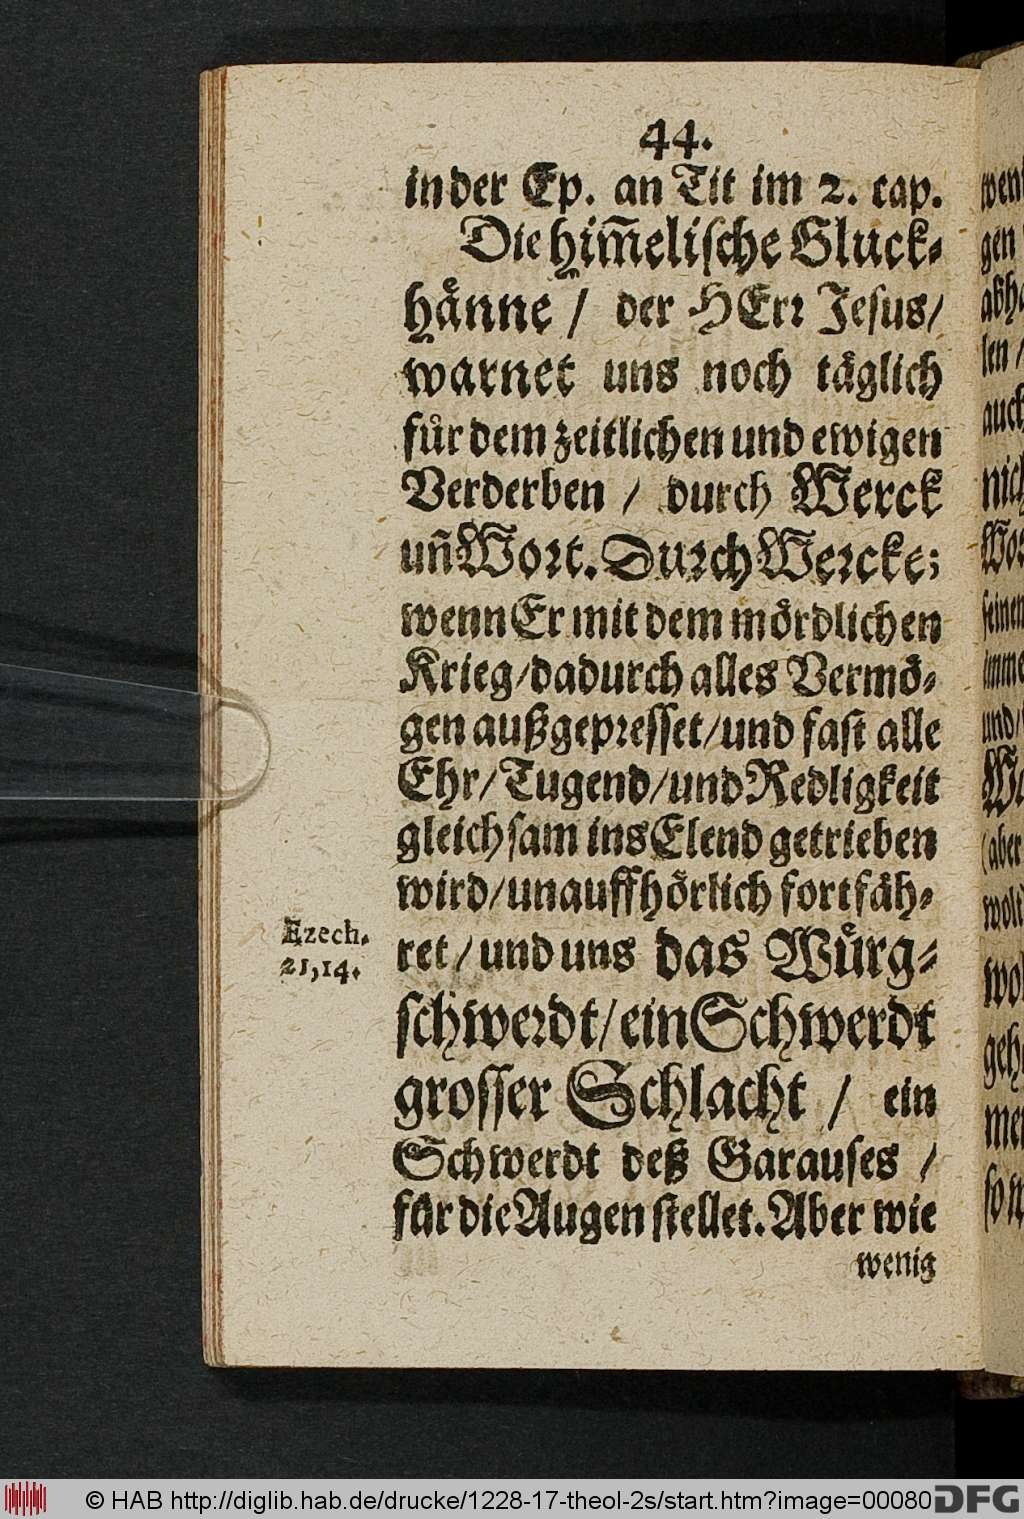 44.
in der Ep. an Tit im 2. cap.
Die him̄elische Gluck-
haͤnne / der HErꝛ Jesus/
warnet uns noch taͤglich
fuͤr dem zeitlichen und ewigen
Verderben / durch Werck
uñ Woꝛt. Duꝛch Weꝛcke;
wenn Er mit dem moͤrdlichen
Krieg/dadurch alles Vermoͤ-
gen außgepꝛesset/und fast alle
Ehr/Tugend/und Redligkeit
gleichsam ins Elend getrieben
wird/unauffhoͤrlich fortfaͤh-
Ezech.
21,14.
ret / und uns das Wuͤrg-
schweꝛdt/ein Schwerdt
grosser Schlacht / ein
Schwerdt deß Garauses /
fuͤr die Augen stellet. Aber wie
wenig
© HAB http://diglib.hab.de/drucke/1228-17-theol-2s/start.htm?image=00080
DFG